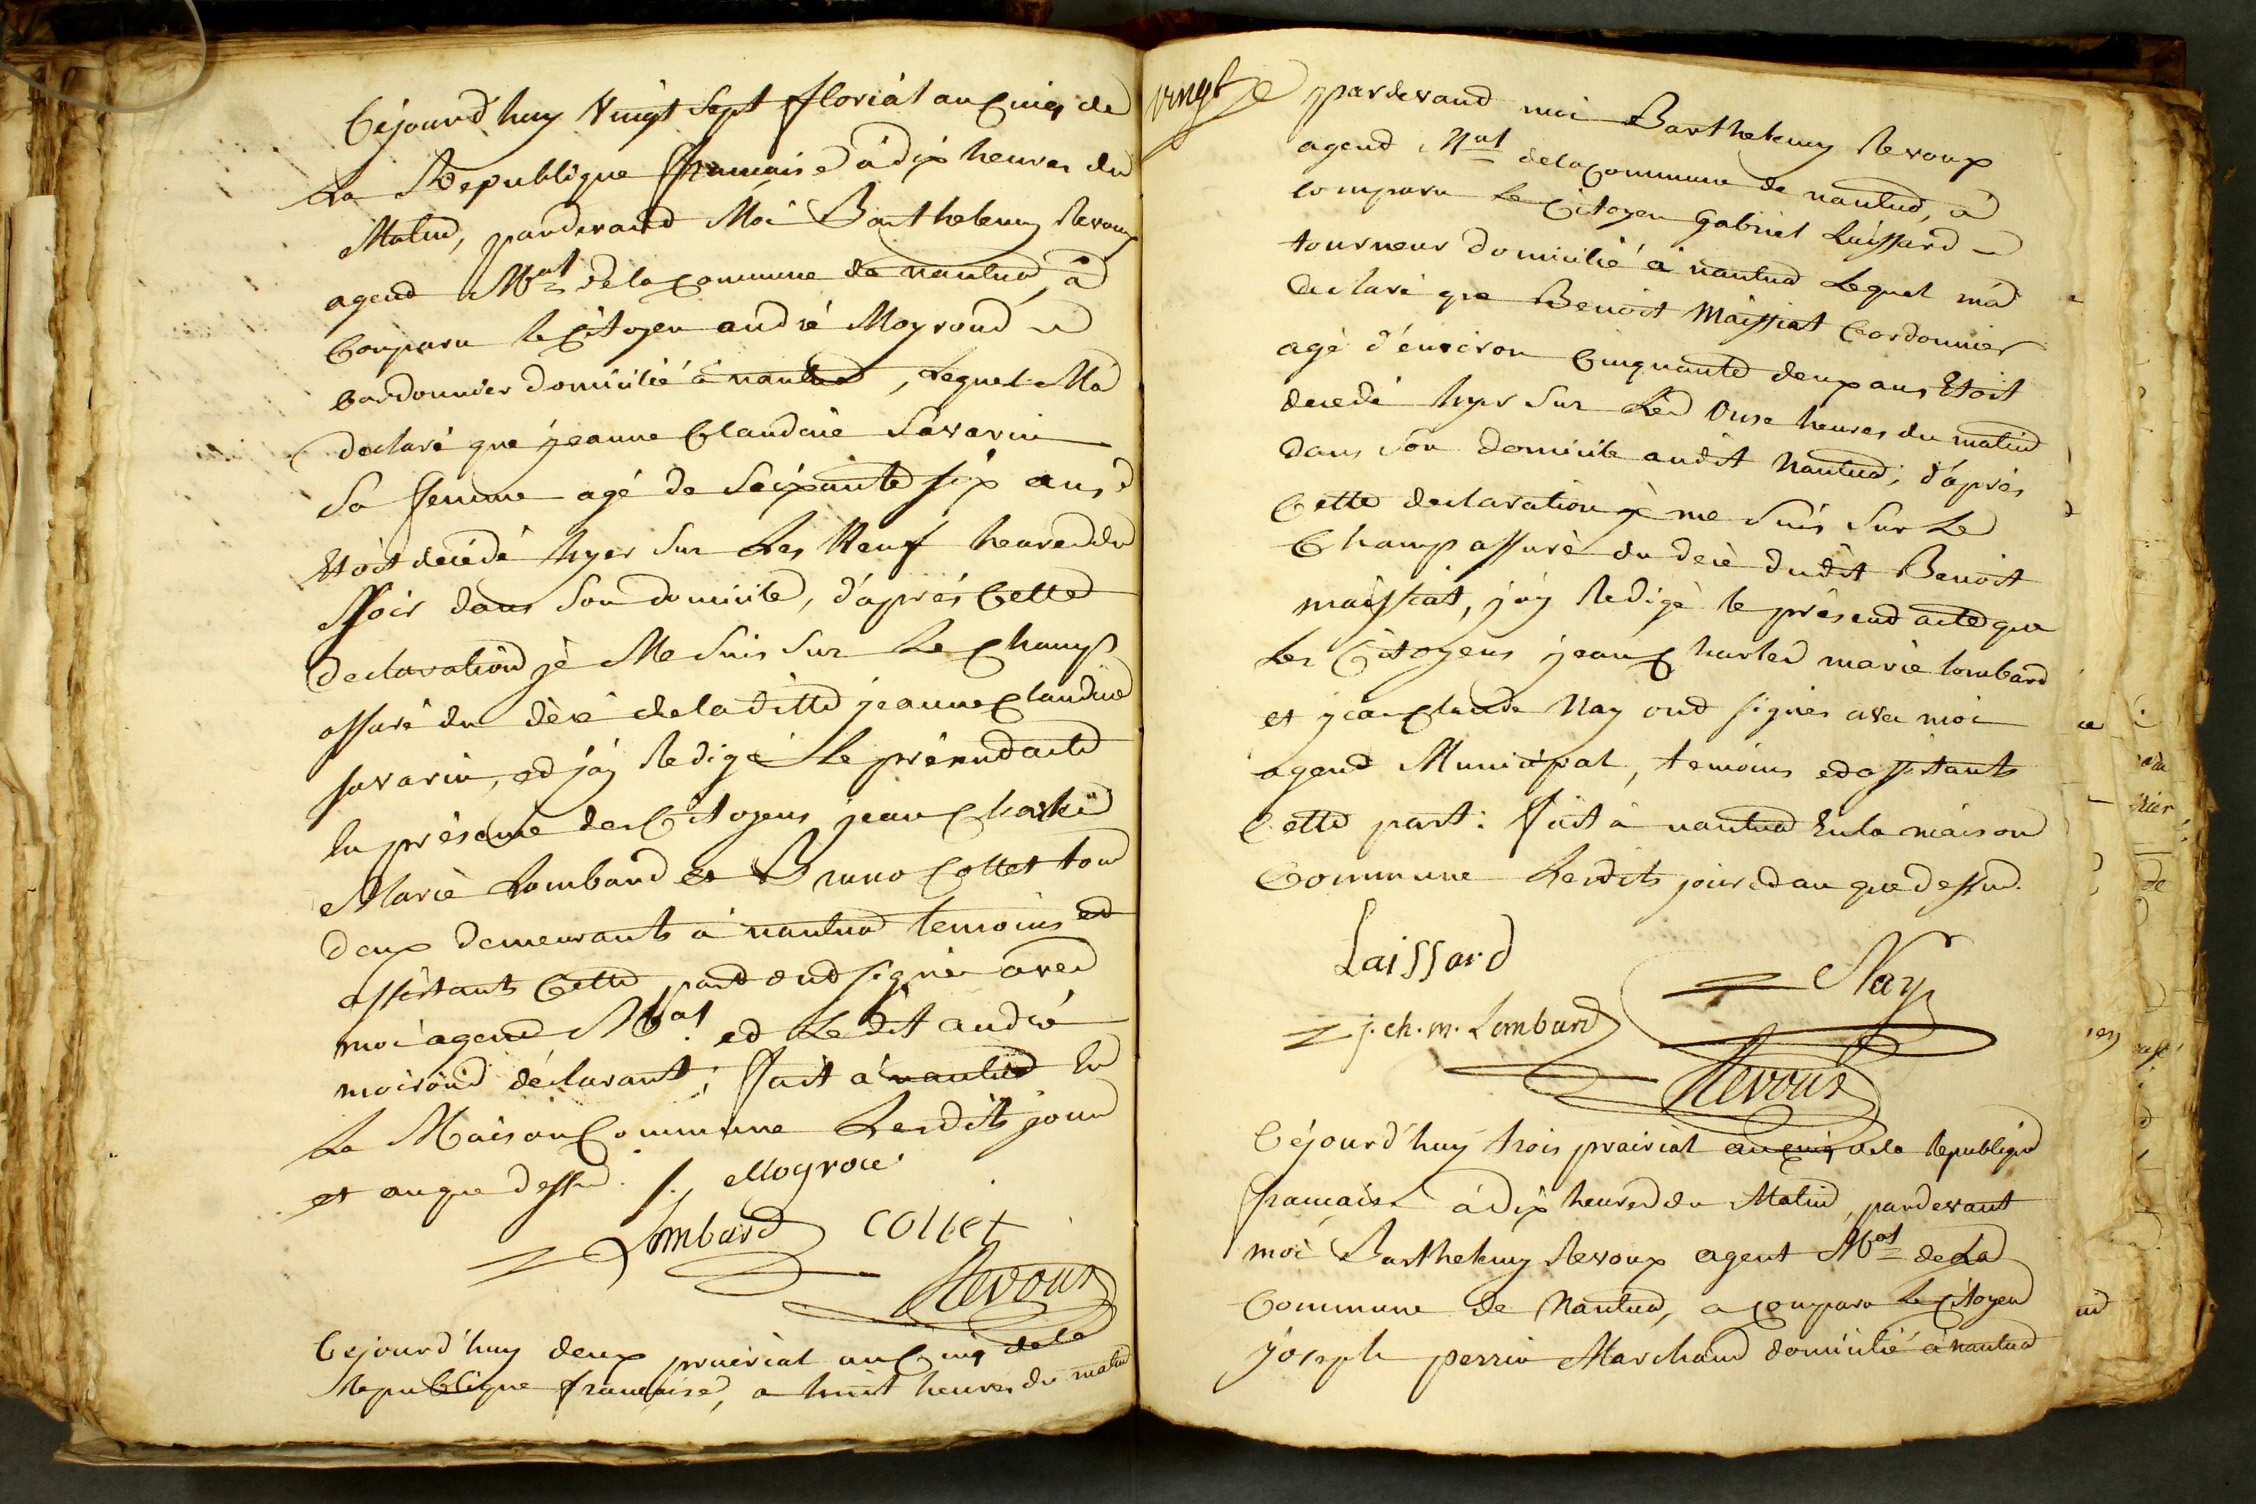 Cejourd'huy Vingt Sept floriàl an Cinq de
La Republique francaise à dix heures du
Matin, pardevand Moi Barthelemy Revoux
agend M.al de la Commune de nantua, à
Comparu le Citoyen andré Moyroud
Cordonnier domicilié à nantua, Lequel M'a
declaré que jeanne Claudine Savarin
Sa femme agé de Soixante six ans
Etoit decédé hyer Sur Les Neuf heures du
Soir dans Son domicile, d'après Cette
declaration je Me Suis Sur Le Champ
assuré du décé de la ditte jeanne Claudine
savarin, ed j'ay Redigé Le présend acte
En présence des Citoyens jean Charles
Marie Lombard et Bruno Collet tous
deux demeurants à nantua temoins ed
assistants Cette part ond signés avec
moi agend M.al ed Le dit andré
moiroud déclarant; fait à nantua En
La Maison Commune Lesdits jour
et an que dessus. /. Moyrou
Lombard Collet
Revoux
Cejourd'huy deux prairial an Cinq de la
Republique francaise, a huit heures du matin
vingt
pardevand moi Barthelemy Revoux
agend M.al de la Commune de nantua, à
comparu Le Citoyen Gabriel Laissard
tourneur domicilié à nantua Lequel m'a
declaré que Benoit Maissiat Cordonnier
agé d'environ Cinquante deux ans Etoit
decedé hyer Sur Les Onse heures du matin
dans Son domicile audit Nantua; d'après
Cette declaration je me Suis Sur Le
Champ assuré du décè dudit Benoit
maissiat, j'ay Redigé le présend acte que
Les Citoyens jean Charles marie lombard
et jean Claude Nay ond signés avec moi
agend Municipal, temoins ed assistants
Cette part: fait à nantua En la maison
Commune Lesdits jour ed an que dessus.
Laissard
Nay
j. ch. m. Lombard
Revoux
Cejourd'huy trois prairial an cinq de la Republique
francaise à dix heures du Matin, pardevant
moi Barthelemy Revoux agent M.al de La
Commune de Nantua, a Comparu Le Citoyen
joseph perrin Marchand domicilié à nantua